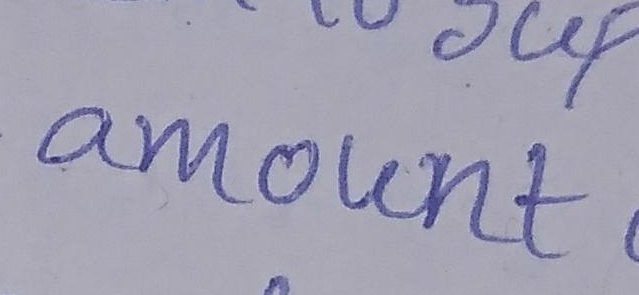 to sup
amount